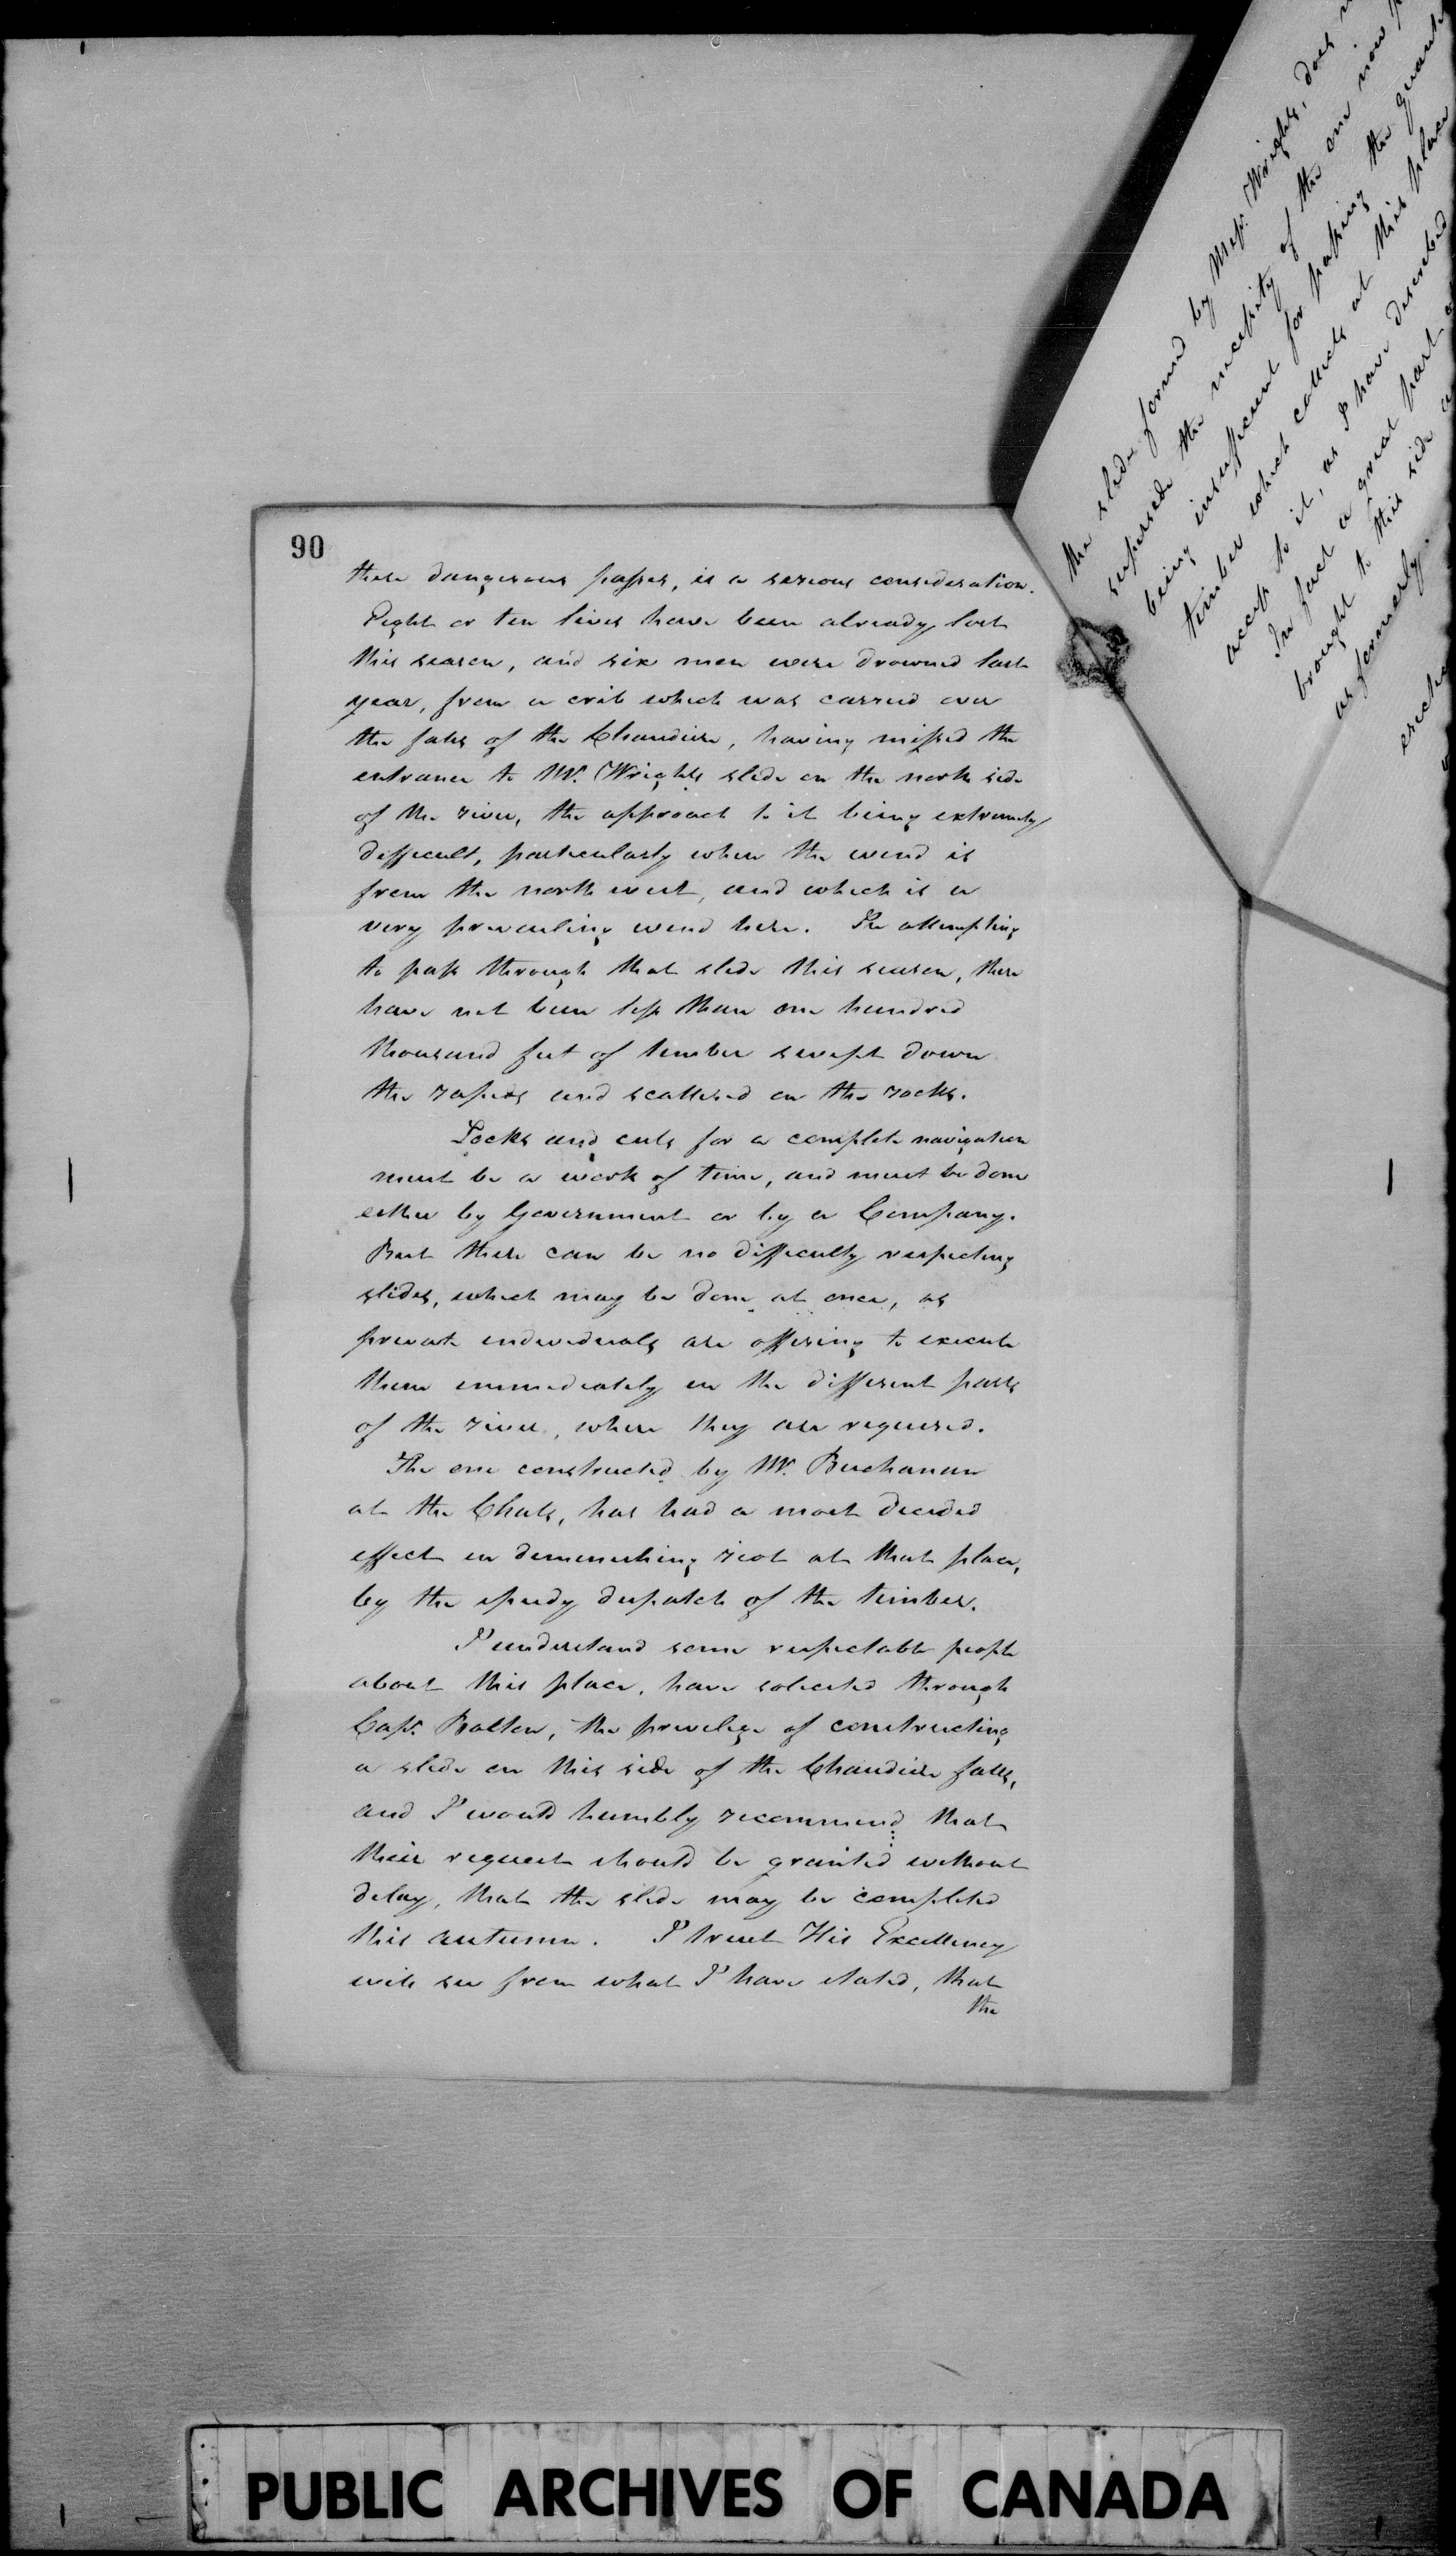 90
these dangerous passes, is a serious consideration.
Eight or ten lives have been already lost
this season, and six men were drowned last
year, from a crib which was carried over
the falls of the Chaudiere, having missed the
entrance to Mr. Wrights slide on the north side
of the river, the approach to it being extremely
difficult, particularly when the wind is
from the north west, and which is a
very prevailing wind here. In attempting
to pass through that slide this season, there
have not been less than one hundred
thousand feet of timber swept down
the rapids and scattered on the rocks.
Locks and cuts for a complete navigation
must be a work of time, and must be done
either by Government or by a Company.
But there can be no difficulty respecting
slides, which may be done at once, as
private individuals are offering to execute
them immediately in the different parts
of the river, where they are required.
The one constructed by Mr. Buchanan
at the Chats, has had a most decided
effect in diminishing riot at that place,
by the speedy dispatch of the timber.
I understand some respectable people
about this place, have solicited through
Capt. Bolton, the privilege of constructing
a slide on this side of the Chaudiere falls,
and I would humbly recommend that
their request should be granted without
delay, that the slide may be completed
this autumn. I trust His Excellency
will see from what I have stated, that
the
the slide formed by Messrs. Wrights, does
supersede the necessity of the one now
being insufficient for passing the
timber which collects at this place
access to it, as I have described
In fact a great part
brought to this side
as formerly.
PUBLIC ARCHIVES OF CANADA